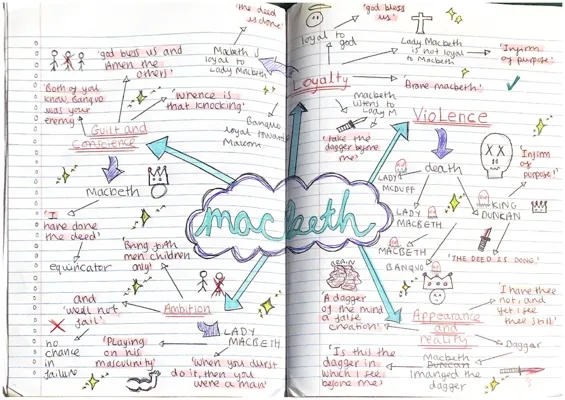 'the deed
is done'
Macbeth
loyal to
Lady Macbeth
'god bless us and
Amen the
others'
'Both of you
know Banquo
was your
enemy'
'Whence is
that knocking'
Guilt and
Conscience
Banquo
loyal towards
Malcom
Macbeth
'I
have done
the deed'
equivocator
'Bring forth
men children
only'
and
'well not
fail'
Ambition
no
chance
in
failure
'Playing
on his
masculinity'
LADY
MACBETH
'When you durst
do it, then you
were a man'
macbeth
loyal to
god
'god bless
us'
Lady Macbeth
is not loyal
to Macbeth
'Infirm
of purpose'
Loyalty
'Brave macbeth'
macbeth
listens to
Lady M
'take the
dagger before
me'
Violence
death
LADY
MCDUFF
LADY
MACBETH
MACBETH
BANQUO
KING
DUNCAN
'Infirm
of
purpose!'
'THE DEED IS DONE'
BRAIN
'A dagger
of the mind
a false
creation'
Appearance
and
reality
'I have thee
not, and
yet I see
thee still'
Daggar
Macbeth
Duncan
Imagined the
dagger
'Is this the
dagger in
which I see
before me'